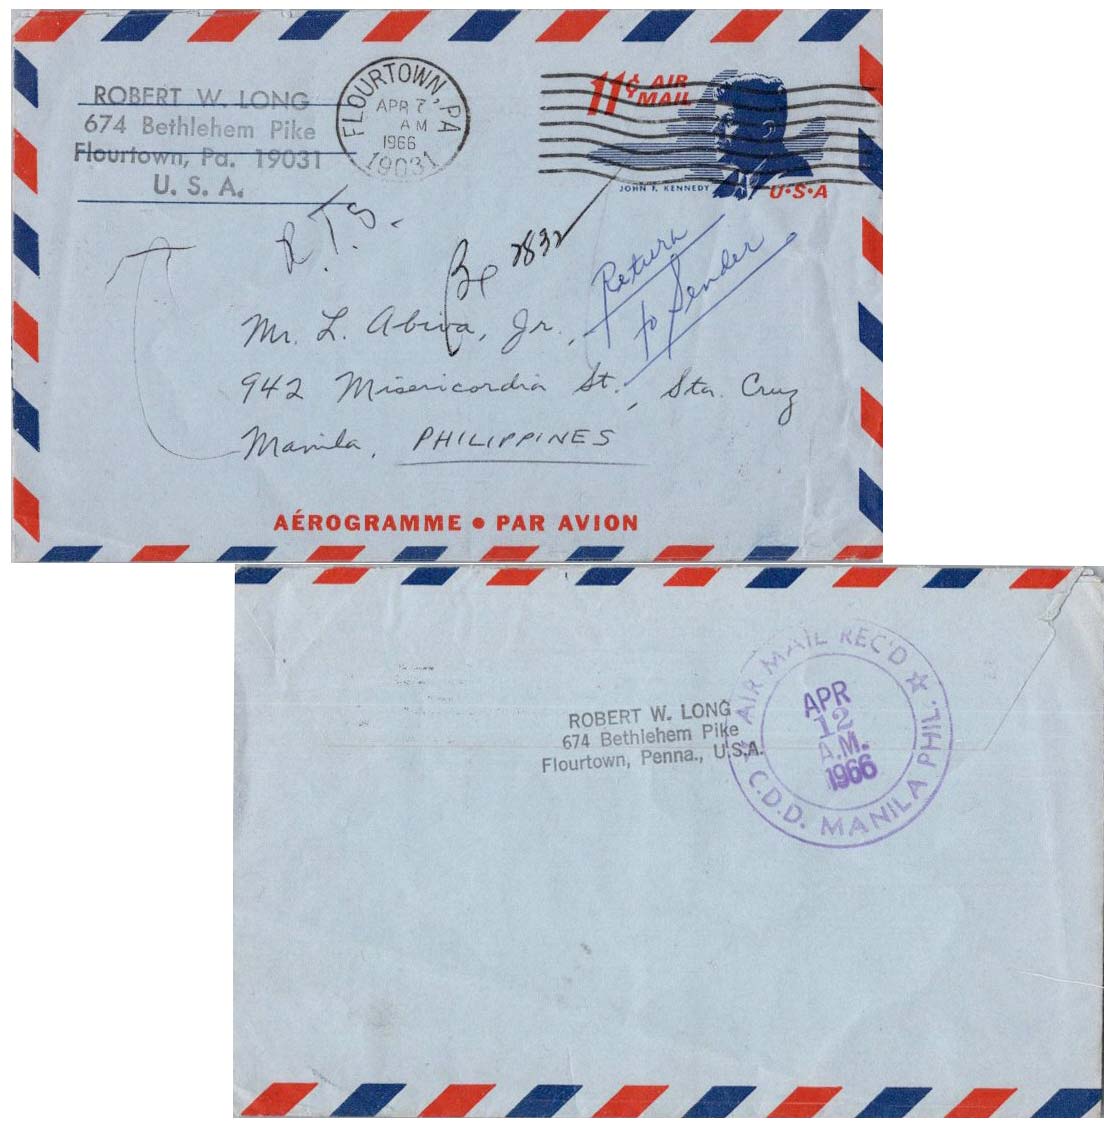 ROBERT W. LONG
674 Bethlehem Pike
Flourtown, Pa. 19031
U. S. A.
FLOURTOWN, PA
APR 7
AM
1966
19031
11¢ AIR
MAIL
JOHN F. KENNEDY
U·S·A
R.T.S.
2832
Return
to Sender
Mr. L. Abiva, Jr.,
942 Misericordia St., Sta. Cruz
Manila, PHILIPPINES
AÉROGRAMME • PAR AVION
ROBERT W. LONG
674 Bethlehem Pike
Flourtown, Penna., U.S.A.
AIR MAIL REC'D
APR
12
A.M.
1966
C.D.D. MANILA PHIL.